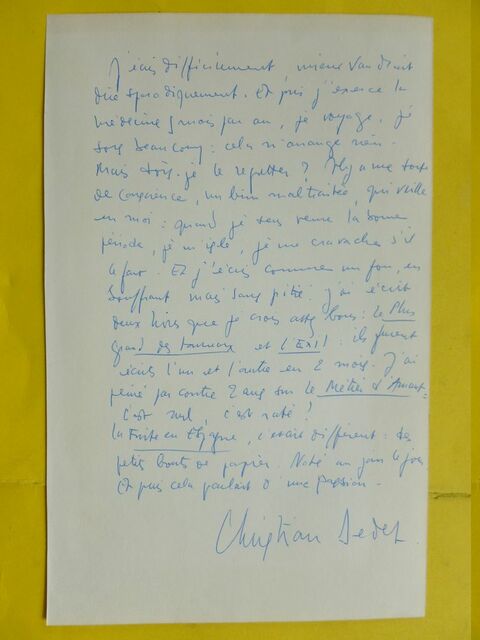 J'écris difficilement, mieux vaudrait
dire sporadiquement. Et puis j'exerce la
médecine 5 mois par an, je voyage, je
sors beaucoup : cela n'arrange rien.
Mais dois-je le regretter ? Il y a une sorte
de conscience, un bien maltraitée, qui veille
en moi : quand je sens venir la bonne
période, je m'isole, je me cravache s'il
le faut. Et j'écris comme un fou, en
souffrant mais sans pitié. J'ai écrit
deux livres que je crois assez bons : le Plus
grand des taureaux et l'EXIL : ils furent
écrits l'un et l'autre en 2 mois. J'ai
peiné par contre 2 ans sur le Métier d'Amant :
c'est nul, c'est raté !
la Fuite en Espagne, c'était différent : des
petits bouts de papier. Noté au jour le jour
Et puis cela parlait d'une passion.
Christian Dedet